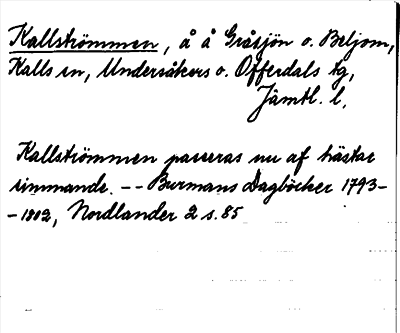 Kallströmmen, å å Gråsjön o. Beljom,
Kalls sn, Undersåkers o. Offerdals tg,
Jämtl. l.
Kallströmmen passeras nu af hästar
simmande. -- Burmans Dagböcker 1793-
-1802, Nordlander 2 s. 85